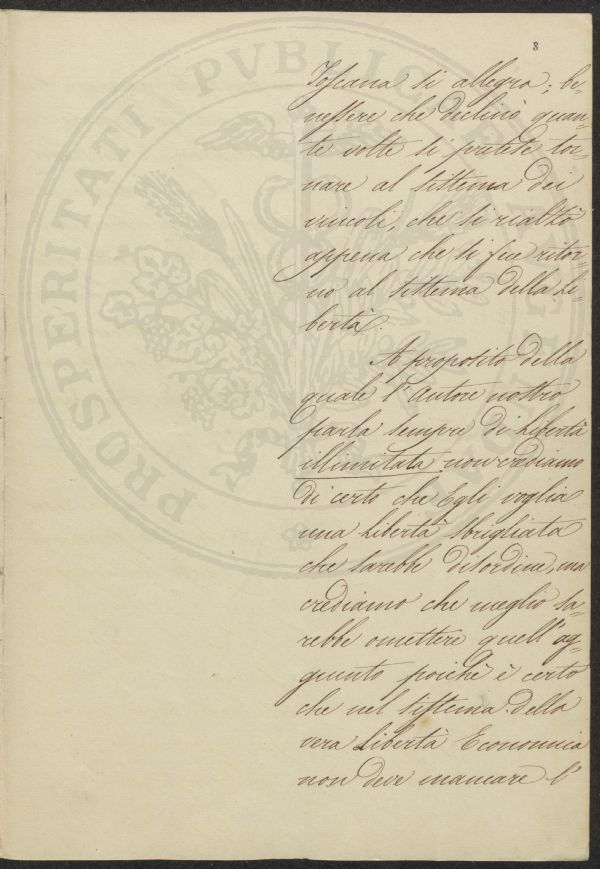 8
Toscana si allegra; be-
nessere che declinò quan-
te volte si pretese tor-
nare al sistema dei
vincoli, che si rialzò
appena che si fece ritor-
no al sistema della Li-
bertà.
A proposito della
quale l'Autore nostro
parla sempre di Libertà
illimitata non crediamo
di certo che Egli voglia
una Libertà sbrigliata
che sarebbe disordine, ma
crediamo che meglio sa-
rebbe omettere quell'ag-
giunto poichè è certo
che nel sistema della
vera Libertà Economica
non deve mancare l'
PROSPERITATI PVBLICAE